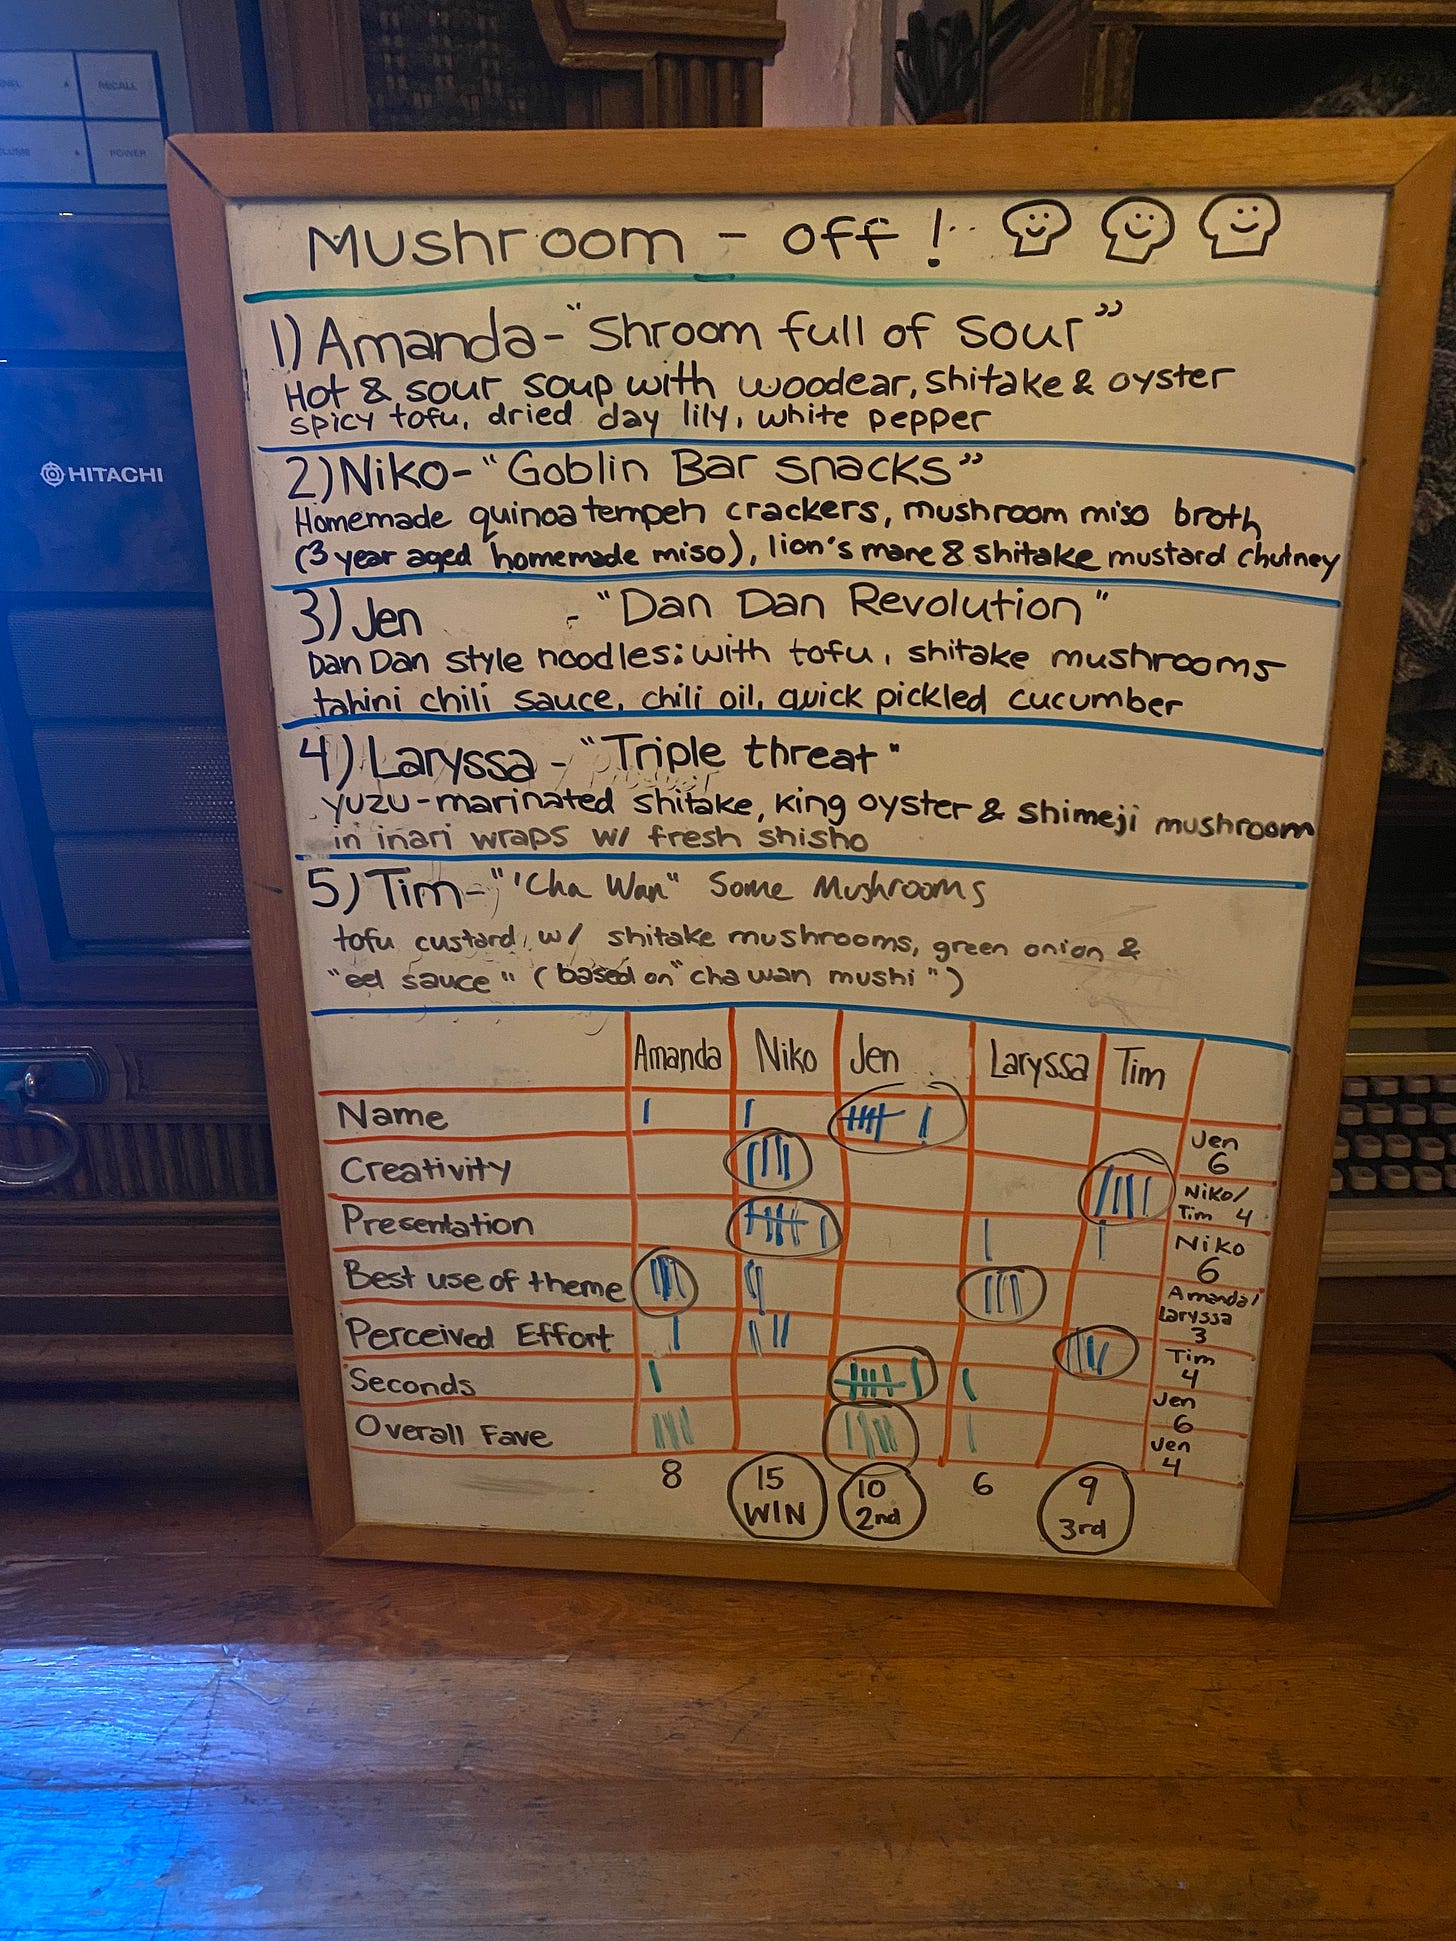 RECALL
POWER
HITACHI
Mushroom - off!
1) Amanda - "Shroom full of sour"
Hot & sour soup with woodear, shitake & oyster
spicy tofu, dried day lily, white pepper
2) Niko - "Goblin Bar snacks"
Homemade quinoa tempeh crackers, mushroom miso broth
(3 year aged homemade miso), lion's mane & shitake mustard chutney
3) Jen - "Dan Dan Revolution"
Dan Dan style noodles: with tofu, shitake mushrooms
tahini chili sauce, chili oil, quick pickled cucumber
4) Laryssa - "Triple threat"
yuzu-marinated shitake, king oyster & shimeji mushroom
in inari wraps w/ fresh shisho
5) Tim - "'Cha Wan" Some Mushrooms
tofu custard w/ shitake mushrooms, green onion &
"eel sauce" (based on "cha wan mushi")
Amanda Niko Jen Laryssa Tim
Name Jen 6
Creativity Niko/ Tim 4
Presentation Niko 6
Best use of theme Amanda/ Laryssa 3
Perceived Effort Tim 4
Seconds Jen 6
Overall Fave Jen 4
8 15 10 6 9
WIN 2nd 3rd